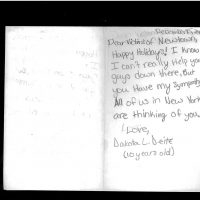 Dear Victims of Newtown,
Happy Holidays! I know
I can't really help you
guys down there, But
you have my Sympathy
All of us in New York
are thinking of you.
Love,
Dakota L. Deite
(10 years old)